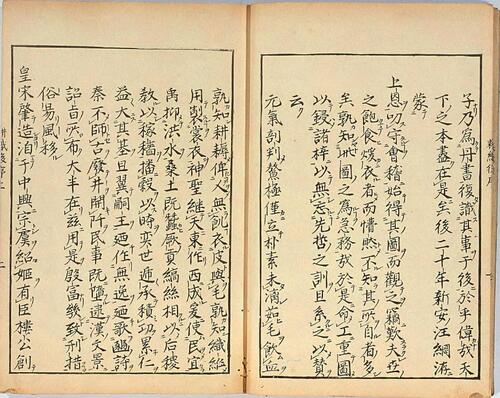 子乃為丹書復識其事于後於乎偉哉天
下之本盡在是矣後二十年新安汪綱濡
蒙
上恩叨守會稽始得其圖而觀之竊歎夫世
之飽食煖衣者而懵然不知其所自者多
矣孰知此圖之為急務哉於是命工重圖
以鋟諸梓以無忘先哲之訓且系之以贊
云
元氣剖判鰲極僅立朴素未漓茹毛飲血
孰知耕耨俾人無飢衣皮與毛孰知織絲
用製裳衣神聖繼天東作西成爰使民宜
禹抑洪水桑土既蠶厥貢縞絲相以后稷
教以稼穡播穀以時奕世遞承積功累仁
益大其基旦翼嗣王廼作無逸廼歌豳詩
秦不師古廢井開阡民事既墮逮漢文景
詔旨所布大半在茲用是殷富幾致刑措
俗易風移
皇宋肇造洎于中興宗虞紹姬有臣樓公創